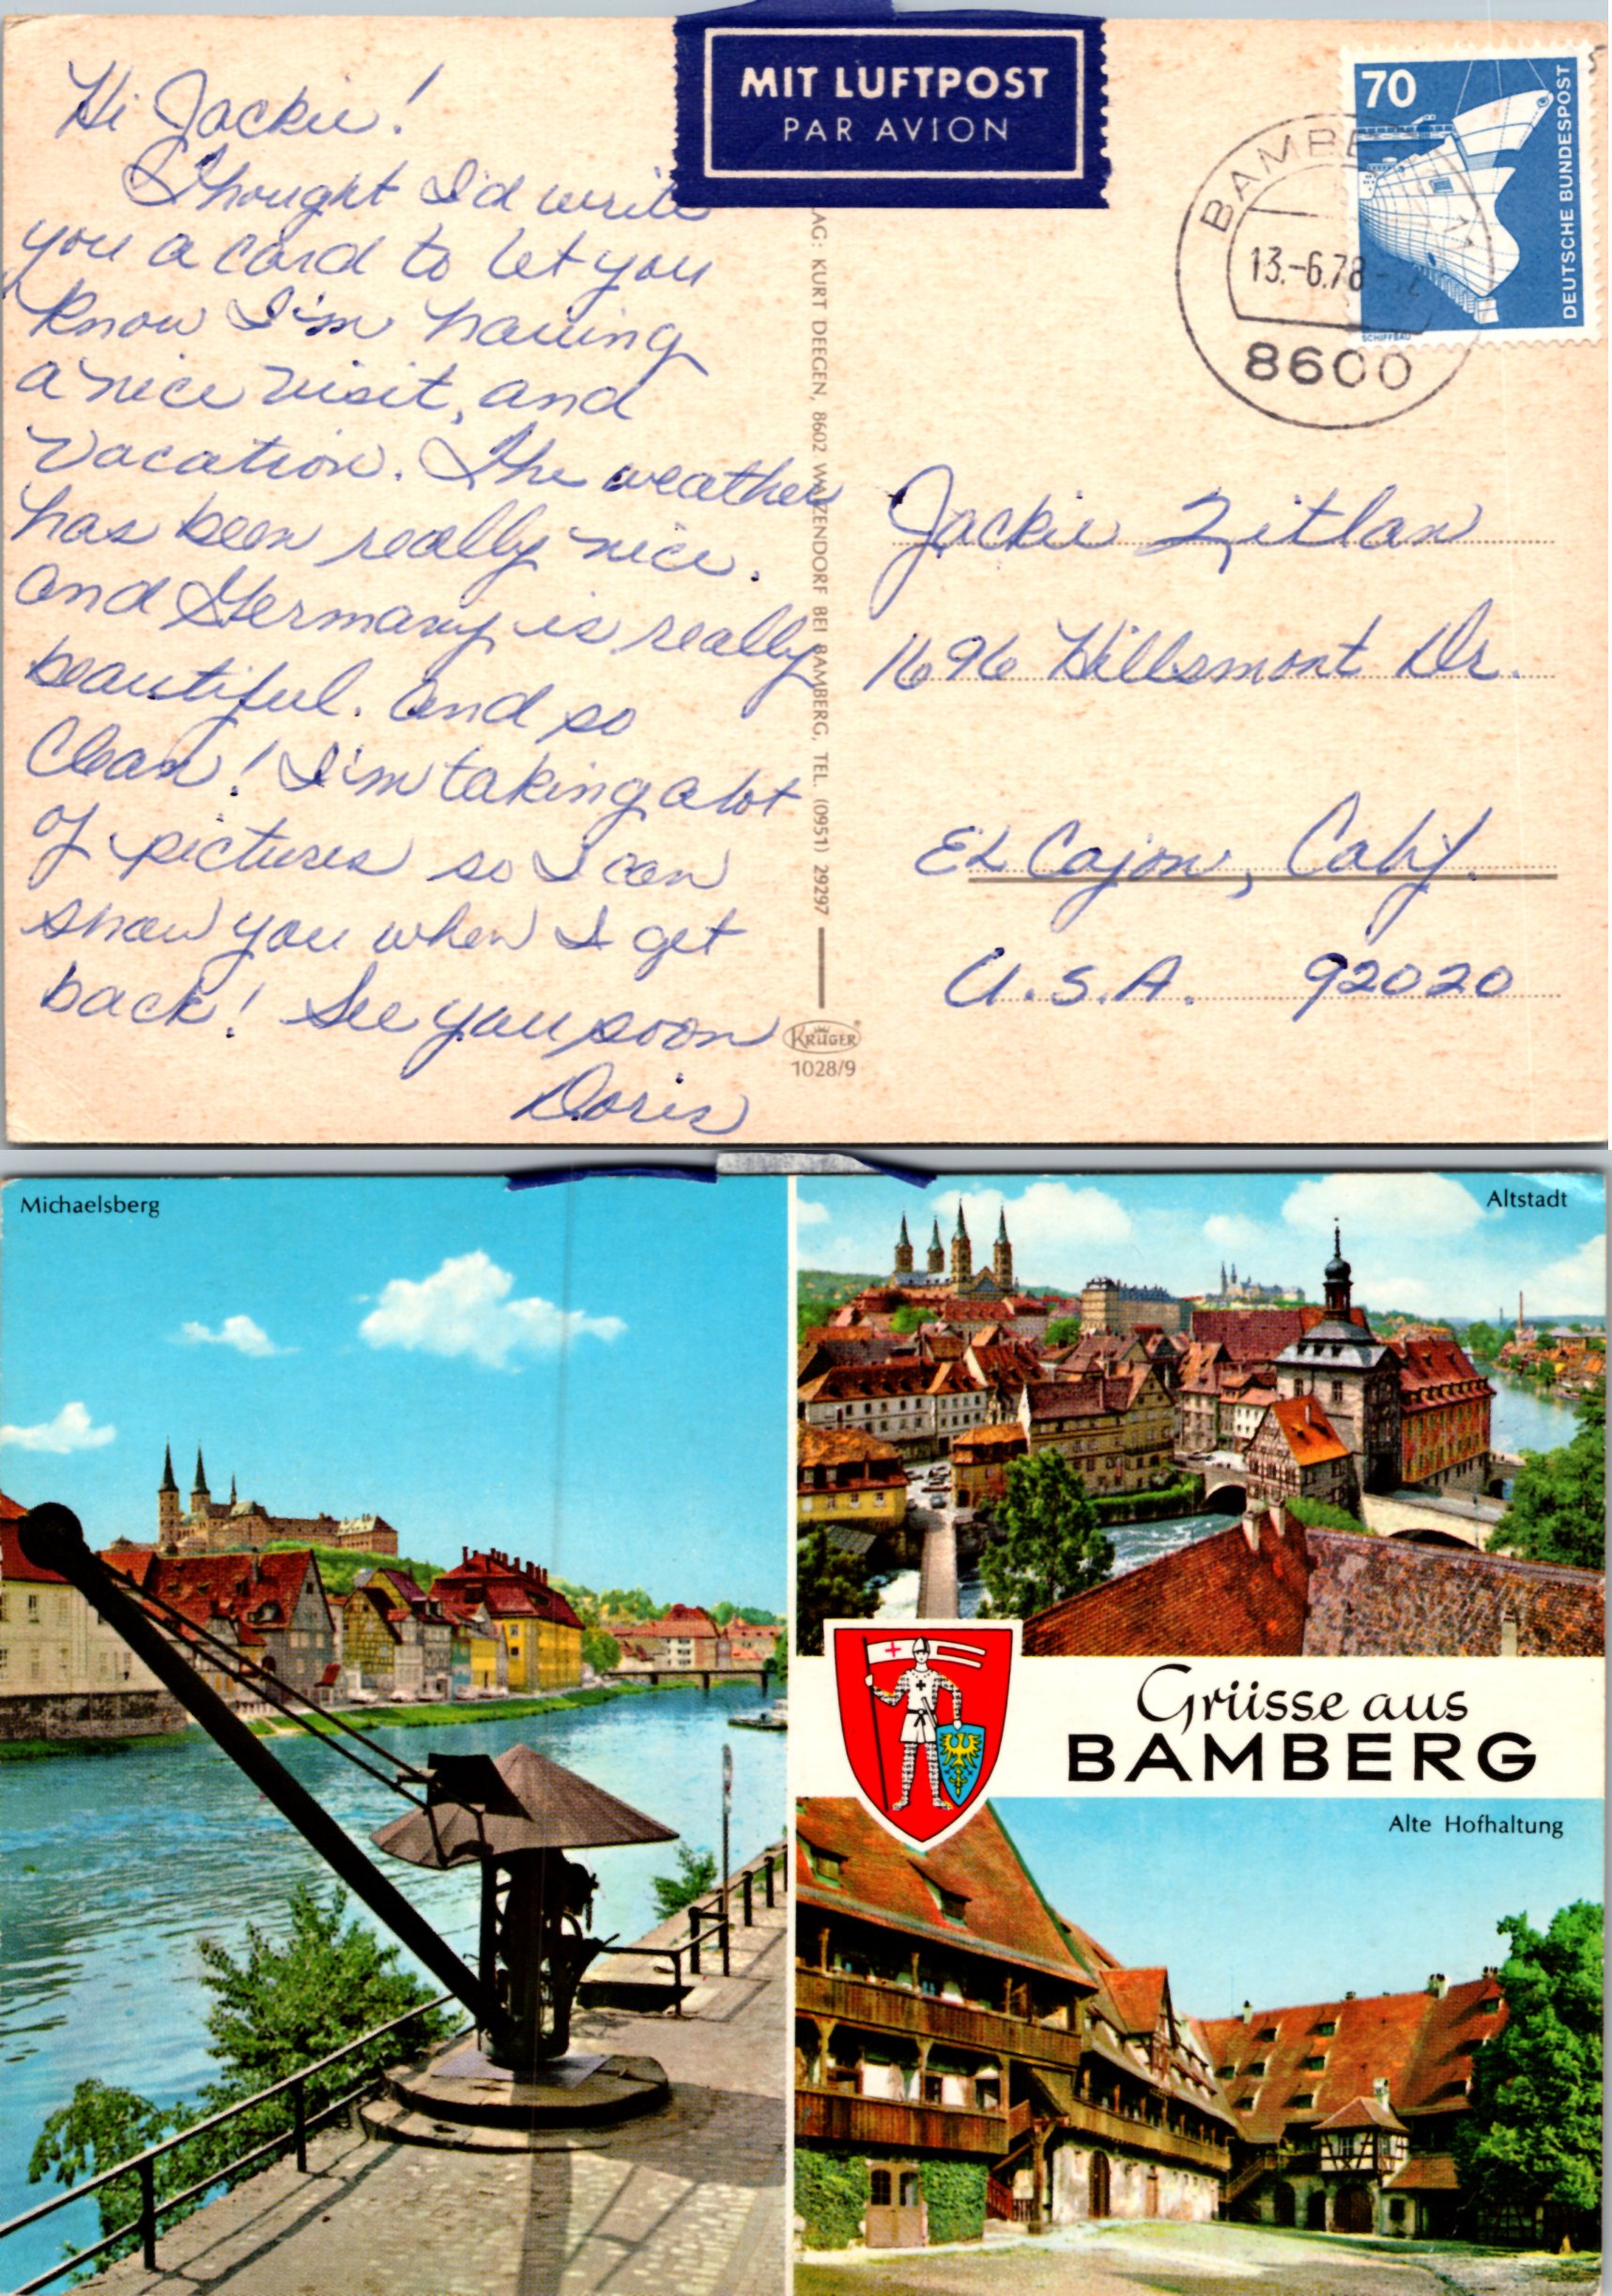 Hi Jackie!
Thought I'd write
you a card to let you
know I'm having
a nice visit, and
vacation. The weather
has been really nice.
and Germany is really
beautiful. and so
Clean! I'm taking a lot
of pictures so I can
show you when I get
back! See you soon
Doris
MIT LUFTPOST
PAR AVION
AG: KURT DEEGEN, 8602 WALZENDORF BEI BAMBERG, TEL. (0951) 29297
KRÜGER
1028/9
70
DEUTSCHE BUNDESPOST
SCHIFFBAU
BAMBERG
13.-6.78
8600
Jackie Zitlan
1696 Hillsmont Dr.
El Cajon, Calif.
U.S.A. 92020
Michaelsberg
Altstadt
Grüsse aus
BAMBERG
Alte Hofhaltung